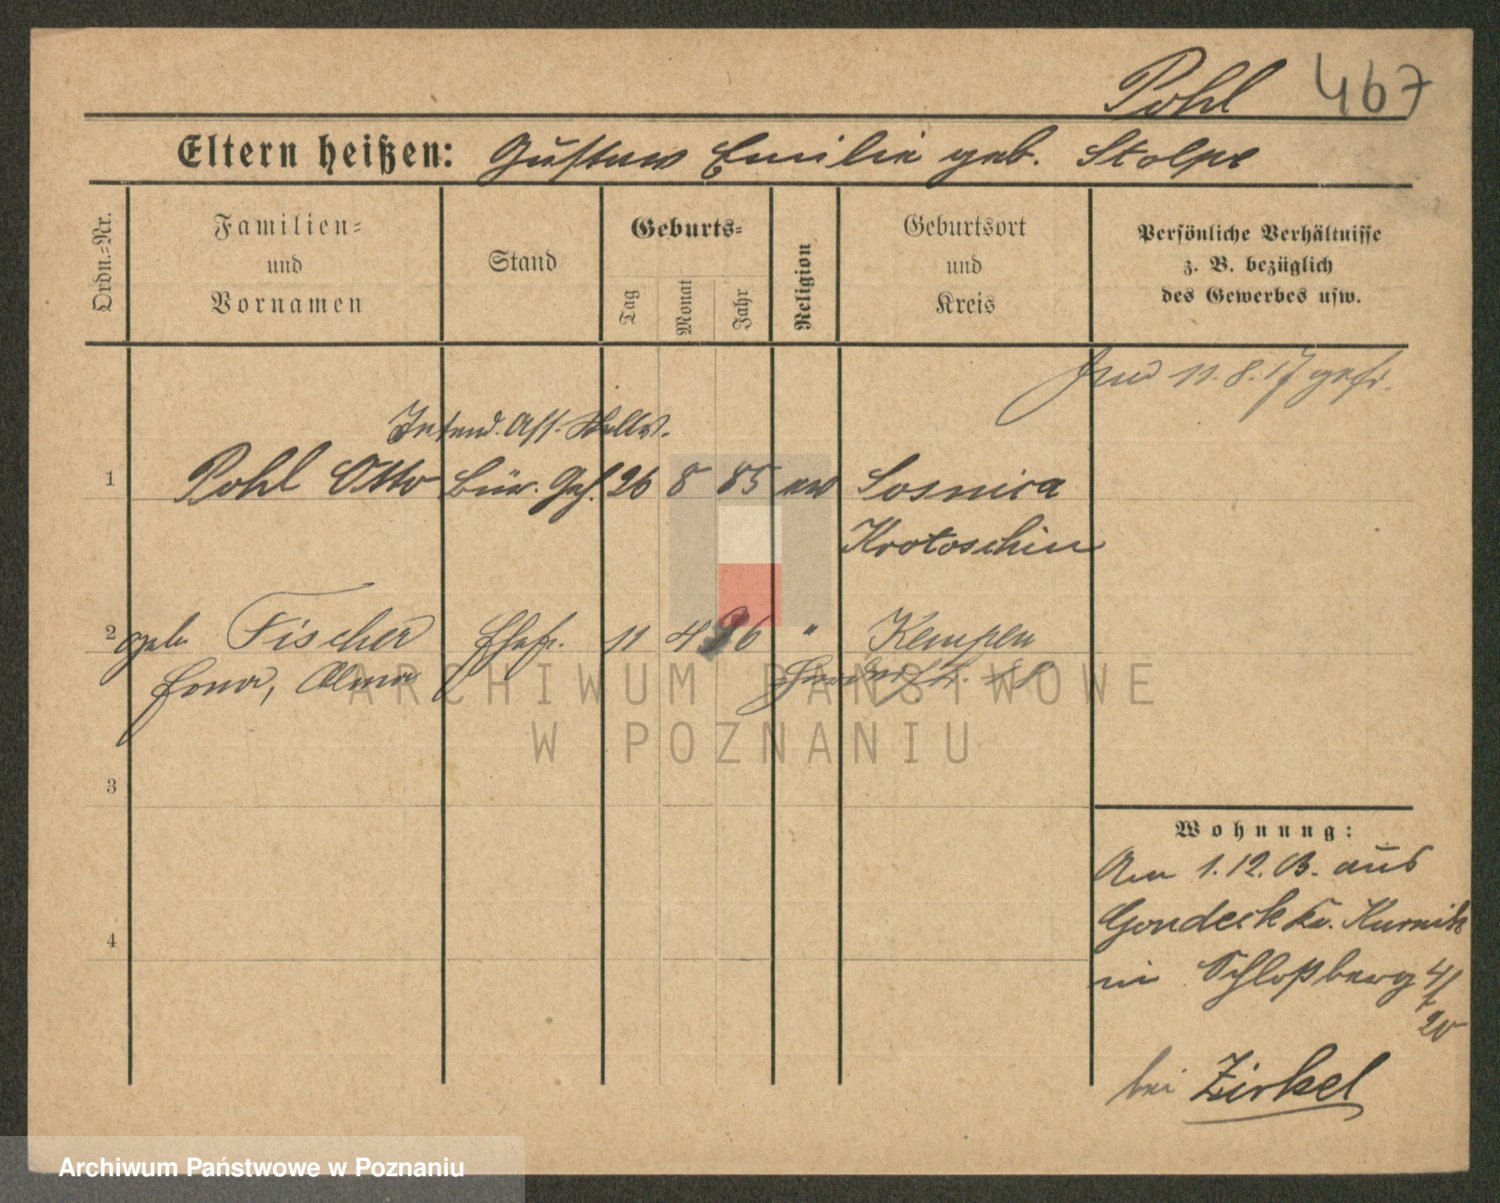 Pohl 467
Eltern heißen: Gustav Emilie geb. Stolpe
Ordn.=Nr.
Familien=
und
Vornamen
Stand
Geburts=
Tag
Monat
Jahr
Religion
Geburtsort
und
Kreis
Persönliche Verhältnisse
z. B. bezüglich
des Gewerbes usw.
11. 8. 17
Intend. Ass.
1 Pohl Otto Bür. Geh. 26 8 85 ev Sosnica
Krotoschin
2 geb. Fischer Ehefr. 11 4 96 " Kempen
Erna, Alma
ARCHIWUM PAŃSTWOWE
W POZNANIU
3
4
Wohnung:
Am 1.12.03. aus
Gondeck Kr. Kurnik
in Schloßberg 4/
20
bei Zirkel
Archiwum Państwowe w Poznaniu